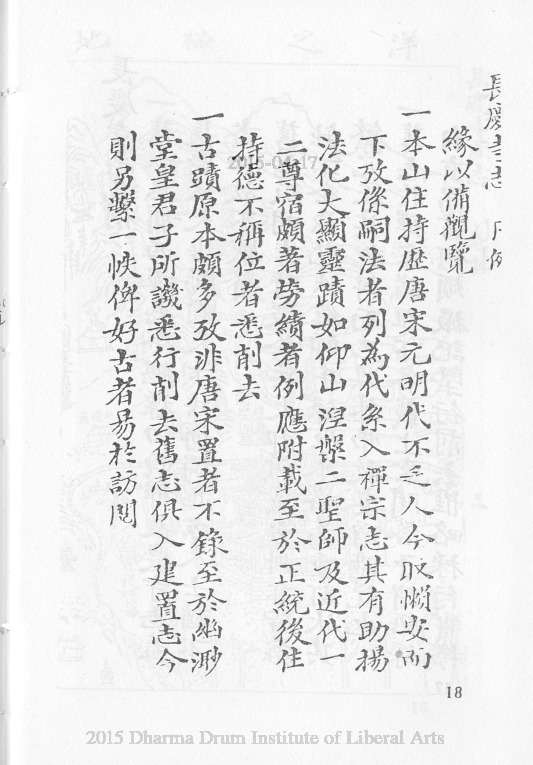 長慶寺志 凡例
緣以備觀覽
一本山住持歷唐宋元明代不乏人今取懶安而
下攷係嗣法者列為代系入禪宗志其有助揚
法化大顯靈蹟如仰山涅槃二聖師及近代一
二尊宿頗著勞績者例應附載至於正統後住
持德不稱位者悉削去
一古蹟原本頗多攷非唐宋置者不錄至於幽渺
堂皇君子所譏悉行削去舊志俱入建置志今
則另彙一帙俾好古者易於訪閱
18
2015-04-17
2015 Dharma Drum Institute of Liberal Arts